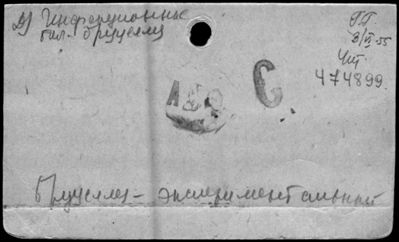 А) Инфекционные
бол. бруцеллез
3/IX-55
Чит.
474899.
С
Бруцеллез - экспериментальный